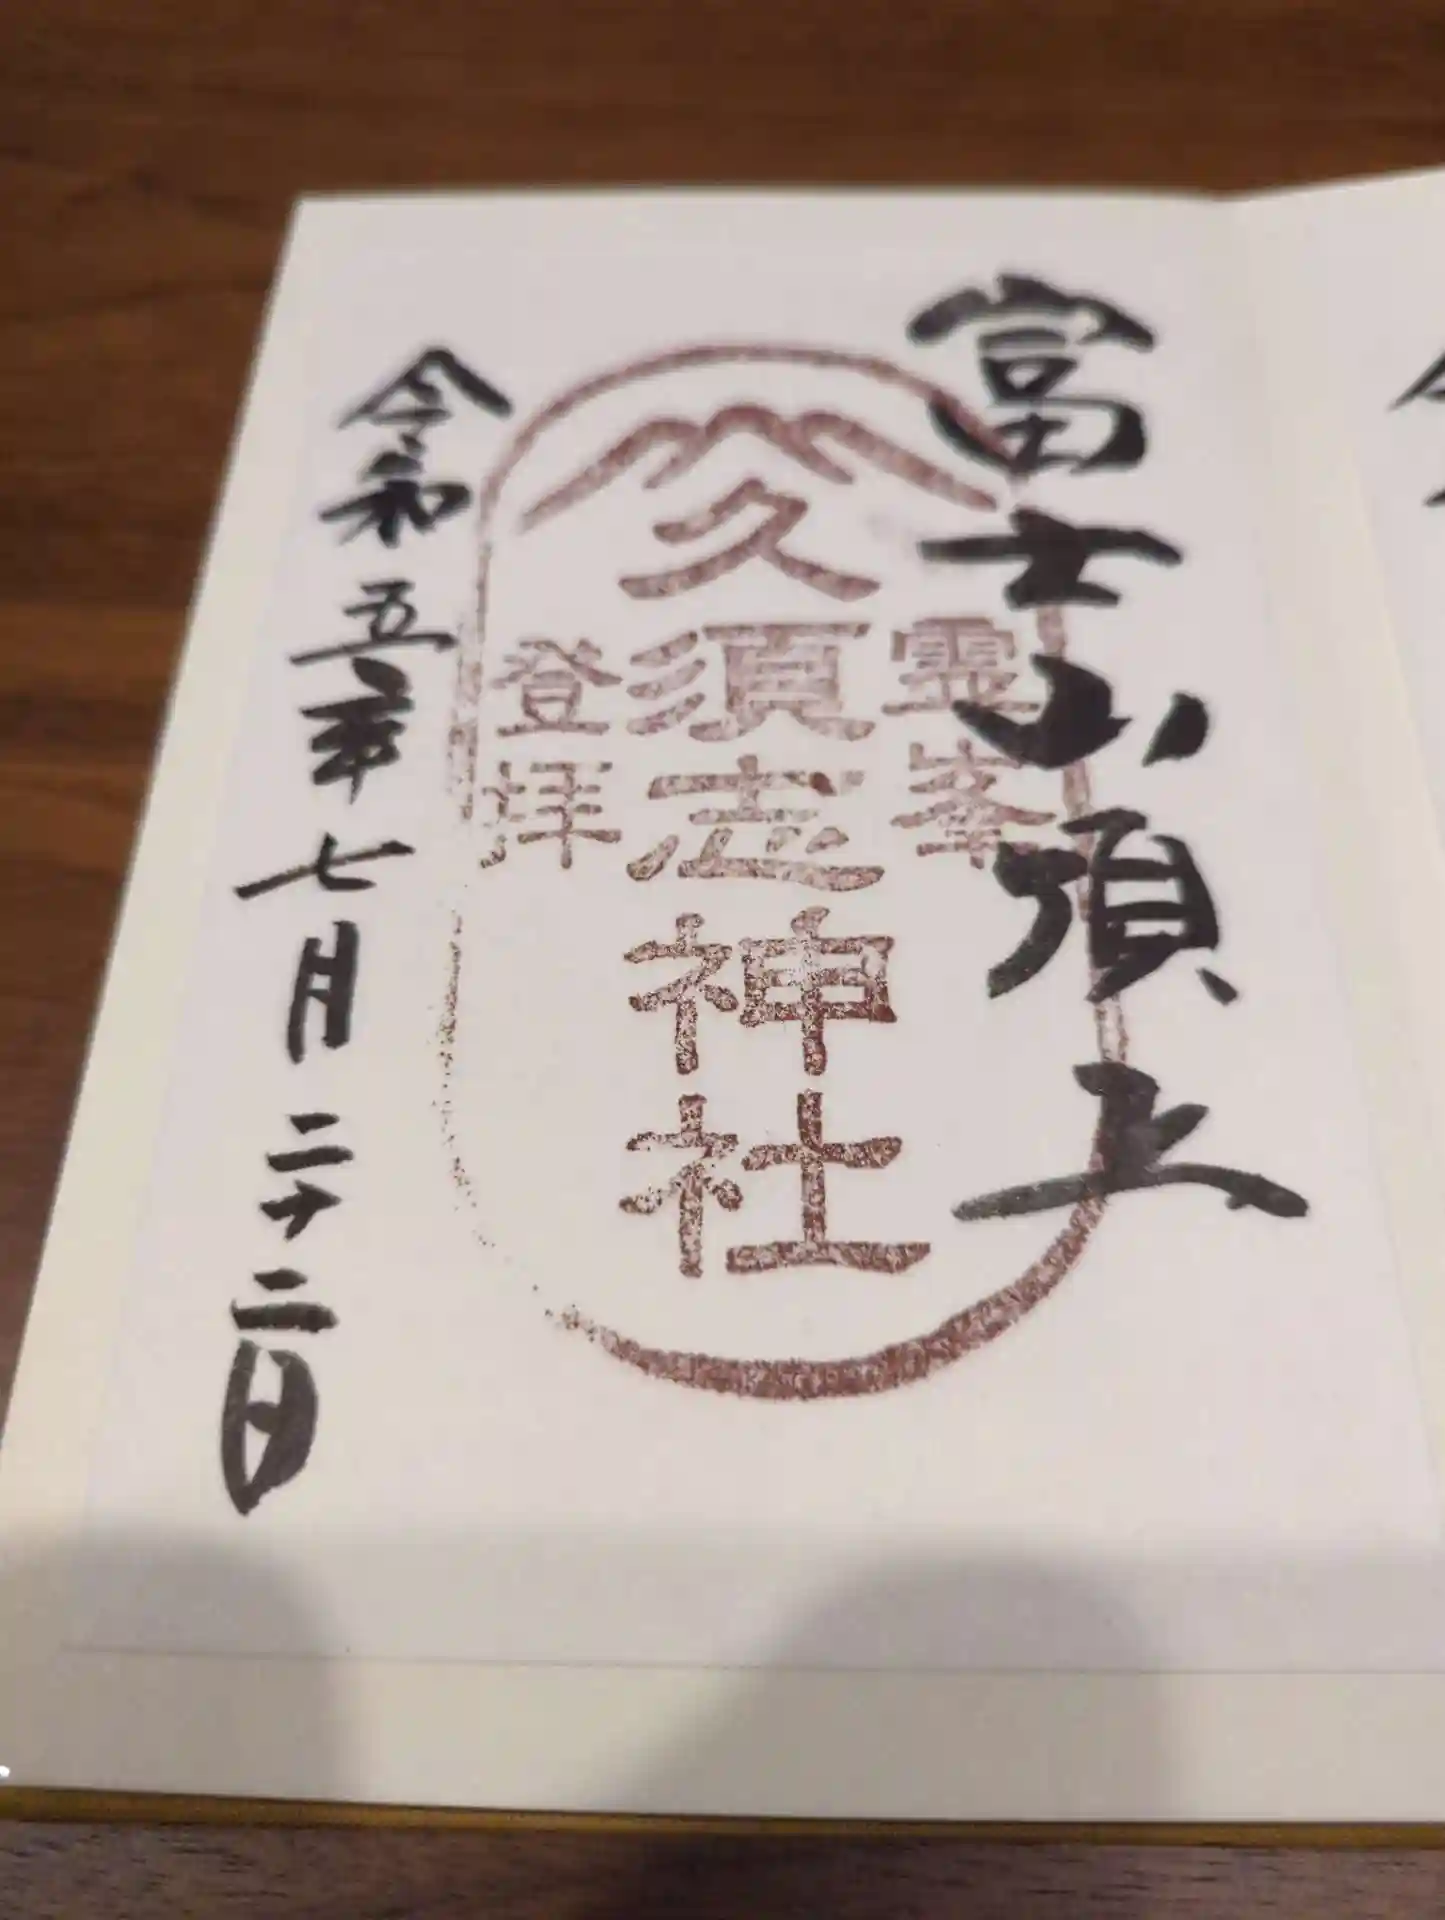 富士山頂上
霊峯
久須志神社
登拝
令和五年七月二十二日